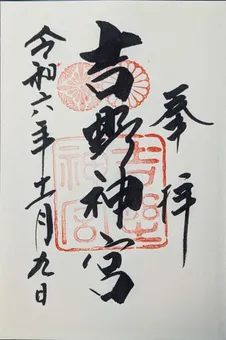 奉拝
吉野神宮
令和六年十一月九日
吉野神宮